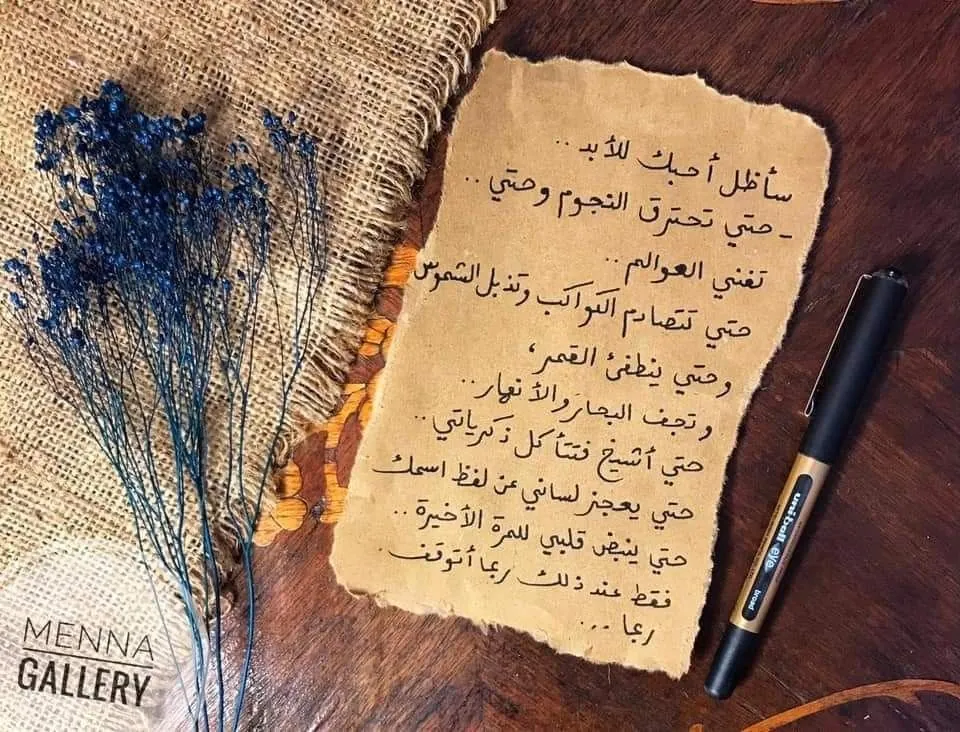 سأظل أحبك للأبد ..
- حتي تحترق النجوم وحتي ..
تفني العوالم ..
حتي تتصادم الكواكب وتذبل الشموس
وحتي ينطفئ القمر،
وتجف البحار والأنهار ..
حتي أشيخ فتتأكل ذكرياتي ..
حتي يعجز لساني عن لفظ اسمك
حتي ينبض قلبي للمرة الأخيرة ..
فقط عند ذلك ربما أتوقف .
ربما ...
uniball eye
broad
MENNA
GALLERY